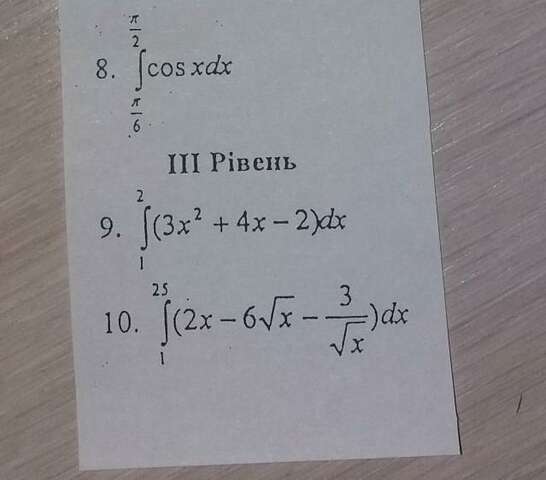 8. \int_{\frac{π}{6}}^{\frac{π}{2}} cos xdx
III Рівень
9. \int_{1}^{2} (3x² + 4x − 2)dx
10. \int_{1}^{25} (2x − 6√x − \frac{3}{√x})dx